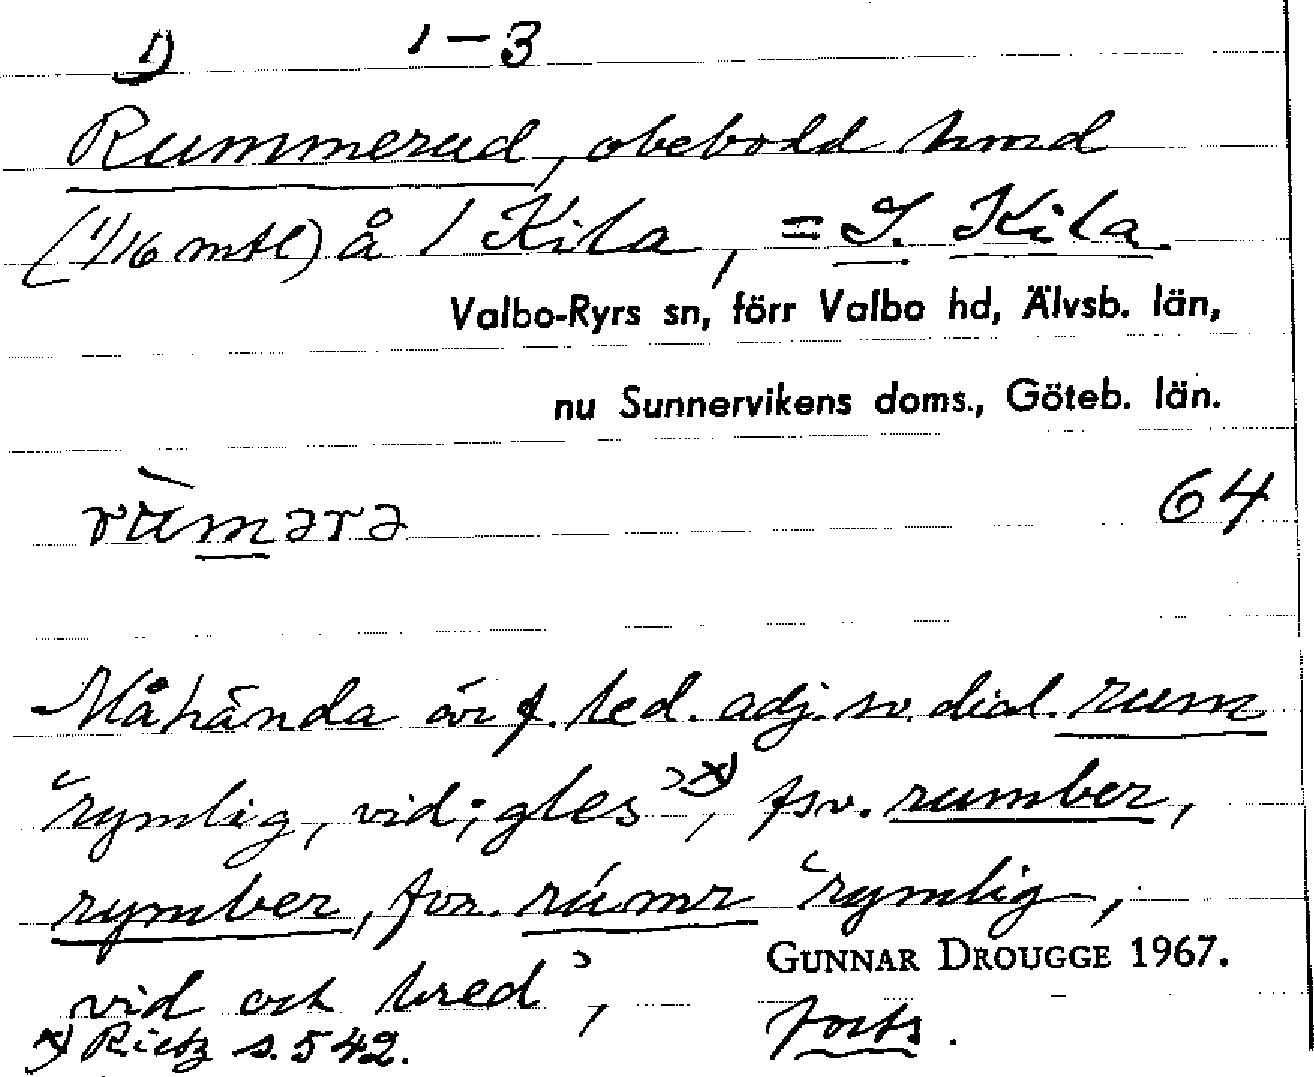 1) 1–3
Rummerud, obebodd hmd
(1/16 mtl) å 1 Kila, = I. Kila
Valbo-Ryrs sn, förr Valbo hd, Älvsb. län,
nu Sunnervikens doms., Göteb. län.
64
Måhända är f. led. adj. sv. dial. rum
'rymlig, vid; gles' x), fsv. rumber,
rymber, fvn. rúmr 'rymlig,
GUNNAR DROUGGE 1967.
vid och bred',
forts.
x) Rietz s. 542.